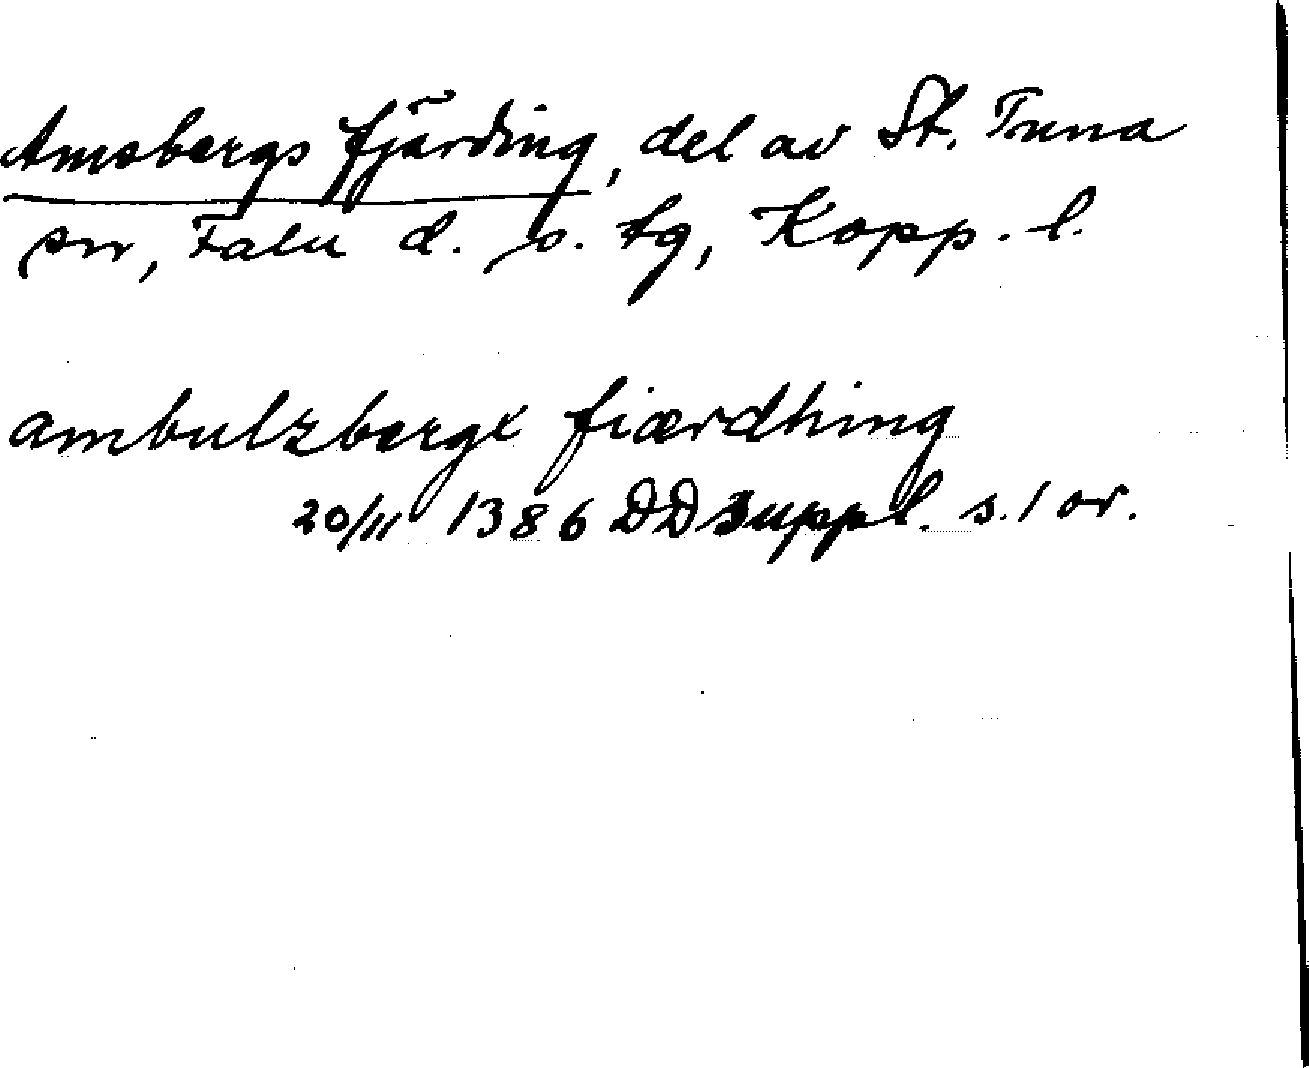 Amsbergs fjärding, del av St. Tuna
sn, Falu d. s. tg, Kopp. l.
ambulzbergx fiærdhing
20/11 1386 DD suppl. s. 1 or.